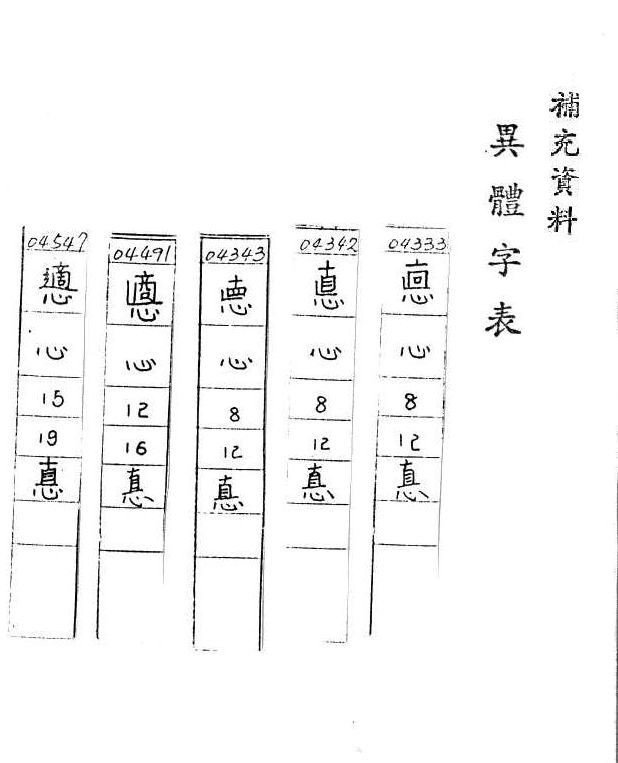 補充資料
異體字表
04333
心
8
12
悳
04342
心
8
12
悳
04343
心
8
12
悳
04491
心
12
16
悳
04547
心
15
19
悳